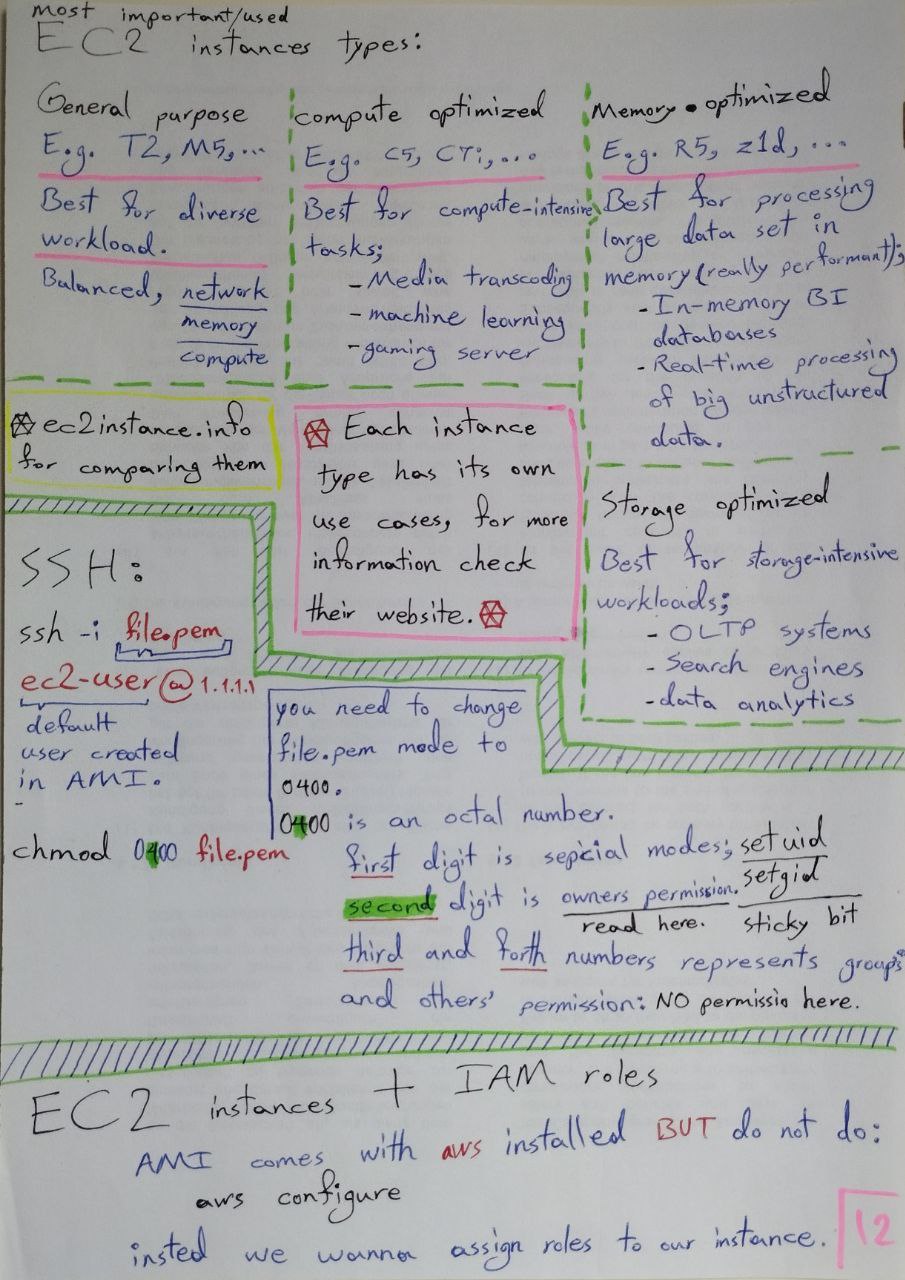 most important/used
EC2 instances types:
General purpose
E.g. T2, M5, ...
Best for diverse
workload.
Balanced, network
memory
compute
compute optimized
E.g. C5, C7i, ...
Best for compute-intensive
tasks;
- Media transcoding
- machine learning
- gaming server
Memory optimized
E.g. R5, z1d, ...
Best for processing
large data set in
memory (really performant);
- In-memory BI
databases
- Real-time processing
of big unstructured
data.
ec2instance.info
for comparing them
Each instance
type has its own
use cases, for more
information check
their website.
Storage optimized
Best for storage-intensive
workloads;
- OLTP systems
- Search engines
- data analytics
SSH:
ssh -i file.pem
ec2-user@1.1.1.1
default
user created
in AMI.
chmod 0400 file.pem
you need to change
file.pem mode to
0400.
0400 is an octal number.
first digit is sepcial modes; setuid
setgid
sticky bit
second digit is owners permission.
read here.
third and forth numbers represents group's
and others' permission: NO permissio here.
EC2 instances + IAM roles
AMI comes with aws installed BUT do not do:
aws configure
insted we wanna assign roles to our instance.
12